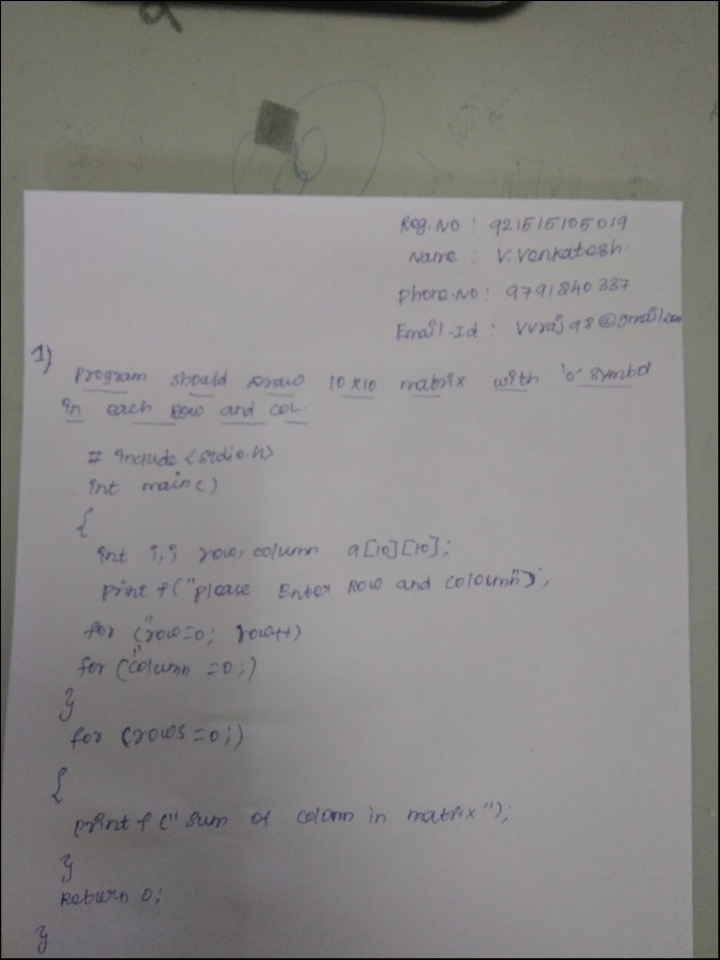 Reg.No : 921515105019
Name : V.Venkatesh.
Phone.No : 9791840337
Email-Id : vvraj98@gmail.com
1)
Program should Draw 10x10 matrix with 'o' symbol
in each Row and col.
# include <stdio.h>
int main()
{
int i,j row, column a[10][10];
print f("please Enter Row and coloumn");
for ("row=0; row++)
for ("column =0;)
}
for (rows =0;)
{
print f (" sum of colomn in matrix");
}
Return 0;
}